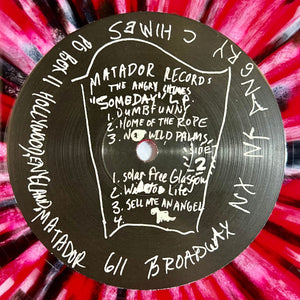 MATADOR RECORDS
THE ANGRY CHIMES
"SOMEDAY" L.P.
1. DUMBFUNNY
2. HOME OF THE ROPE
3. NO WILD PALMS
SIDE
2
1. Solar Free Glasgow
2. Life
3. SELL ME AN ANGEL
4.
CHIMES
PO BOX 11 HOLLYWOOD
MATADOR
611 BROADWAY
NY NY
ANGRY